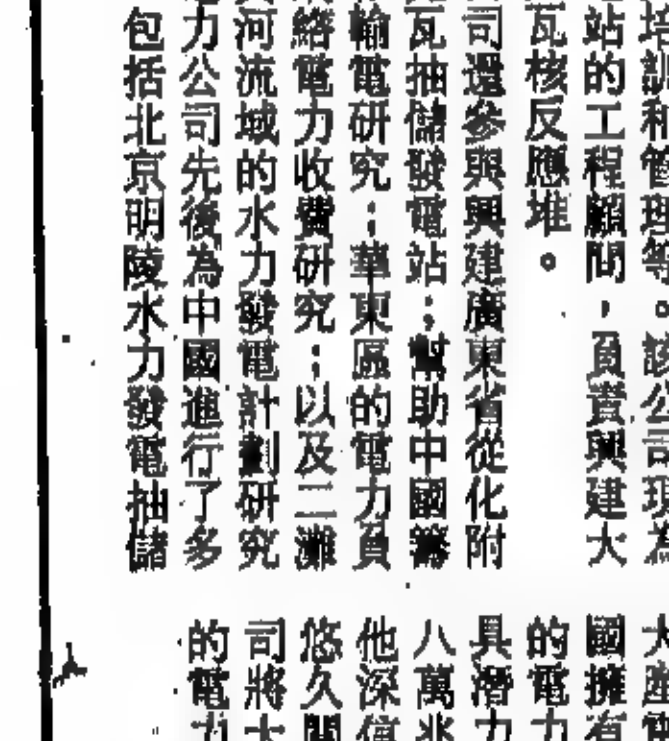 培訓和管理等。該公司現為
站的工程顧問，負責興建大
瓦核反應堆。
司還參與興建廣東省從化附
瓦抽儲發電站；幫助中國籌
輸電研究；華東區的電力負
絡電力收費研究；以及二灘
河流域的水力發電計劃研究
力公司先後為中國進行了多
包括北京明陵水力發電抽儲
國擁有
的電力
具潛力
八萬兆
他深信
悠久
司將
的電力